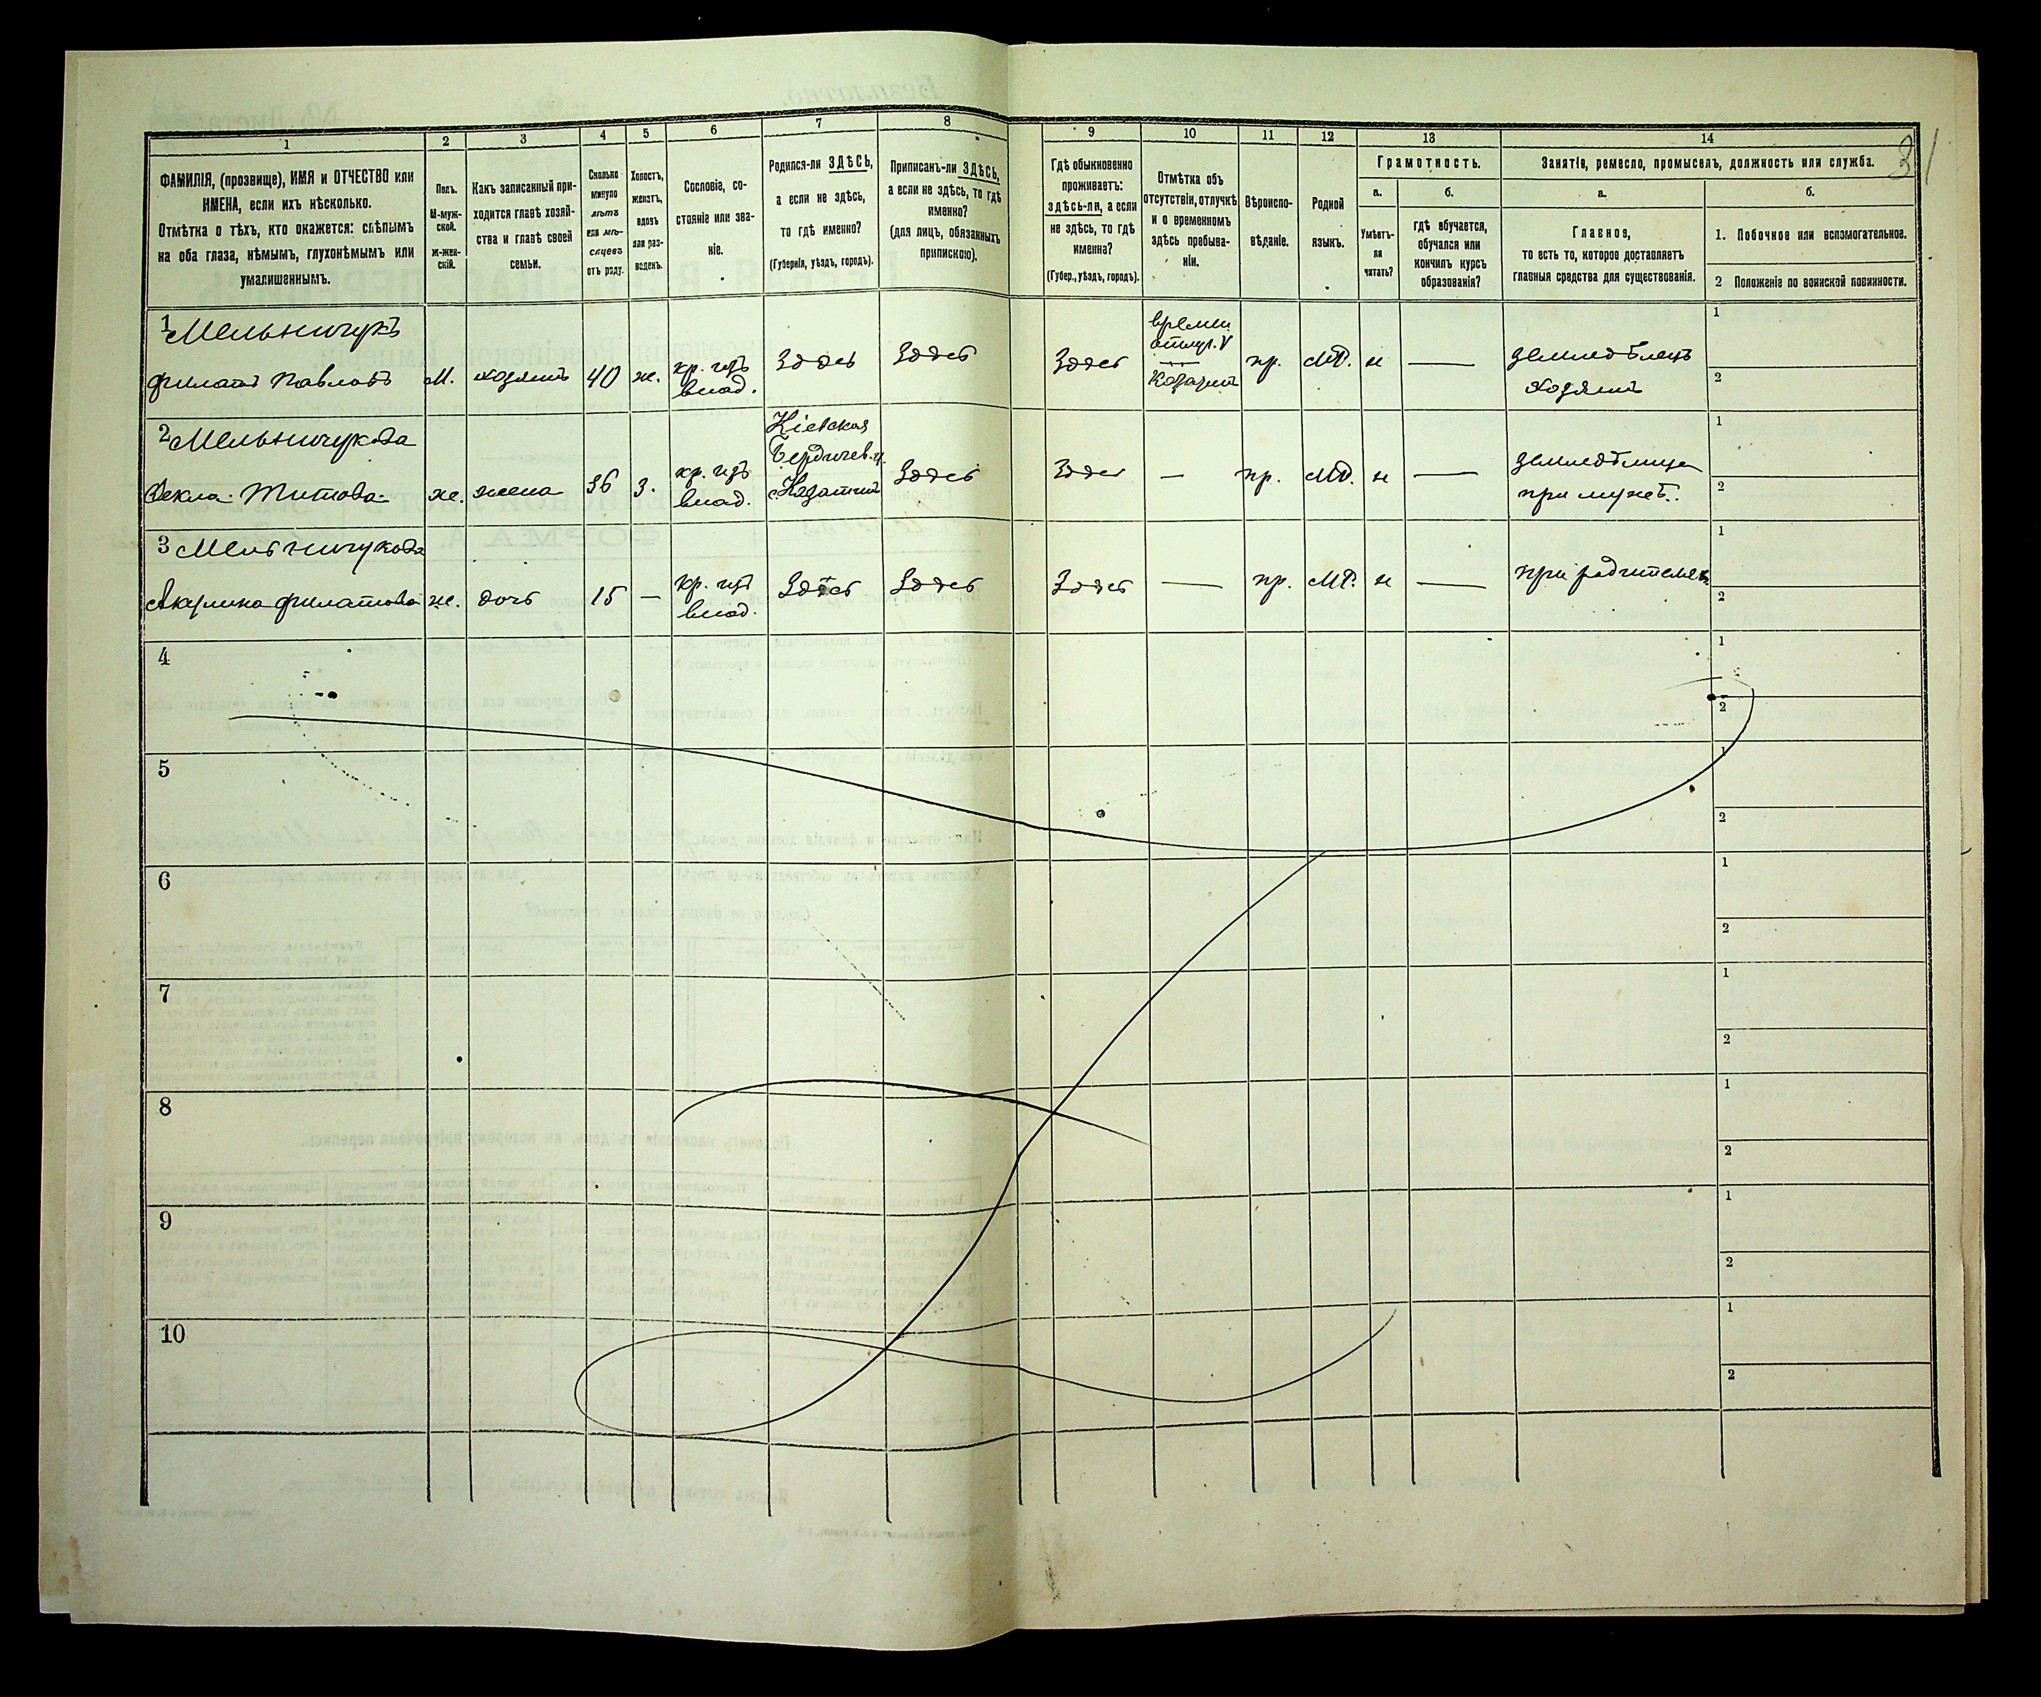 31
1 2 3 4 5 6 7 8 9 10 11 12 13 14
ФАМИЛІЯ, (прозвище), ИМЯ и ОТЧЕСТВО или
ИМЕНА, если ихъ нѣсколько.
Отмѣтка о тѣхъ, кто окажется: слѣпымъ
на оба глаза, нѣмымъ, глухонѣмымъ или
умалишеннымъ.
Полъ.
М-муж-
ской.
Ж-жен-
скій.
Какъ записанный при-
ходится главѣ хозяй-
ства и главѣ своей
семьи.
Сколько
минуло
лѣтъ
или мѣ-
сяцевъ
отъ роду.
Холостъ,
женатъ,
вдовъ
или раз-
веденъ.
Сословіе, со-
стояніе или зва-
ніе.
Родился-ли ЗДѢСЬ,
а если не здѣсь,
то гдѣ именно?
(Губернія, уѣздъ, городъ).
Приписанъ-ли ЗДѢСЬ,
а если не здѣсь, то гдѣ
именно?
(для лицъ, обязанныхъ
припискою).
Гдѣ обыкновенно
проживаетъ:
здѣсь-ли, а если
не здѣсь, то гдѣ
именно?
(Губер., уѣздъ, городъ).
Отмѣтка объ
отсутствіи, отлучкѣ
и о временномъ
здѣсь пребыва-
ніи.
Вѣроиспо-
вѣданіе.
Родной
языкъ.
Грамотность.
а.
Умѣетъ-
ли
читать?
б.
гдѣ обучается,
обучался или
кончилъ курсъ
образованія?
Занятіе, ремесло, промыселъ, должность или служба.
а.
Главное,
то есть то, которое доставляетъ
главныя средства для существованія.
б.
1. Побочное или вспомогательное.
2 Положеніе по воинской повинности.
1 Мельничукъ
Филатъ Павловъ
М.
хозяинъ
40
ж.
кр. изъ
влад.
Здѣсь
Здѣсь
Здѣсь
времен
отлуч. V
Козятин
пр.
МР.
н
—
земледѣлецъ
хозяинъ
1
2
2 Мельничукова
Фекла Титова
ж.
жена
36
з.
кр. изъ
влад.
Кіевская
Бердичев. у.
с. Козятин
Здѣсь
Здѣсь
—
пр.
МР.
н
—
земледѣлица
при мужѣ.
1
2
3 Мельничукова
Акулина Филатова
ж.
дочь
15
—
кр. изъ
влад.
Здѣсь
Здѣсь
Здѣсь
—
пр.
МР.
н
—
при родителях
1
2
4
1
2
5
1
2
6
1
2
7
1
2
8
1
2
9
1
2
10
1
2